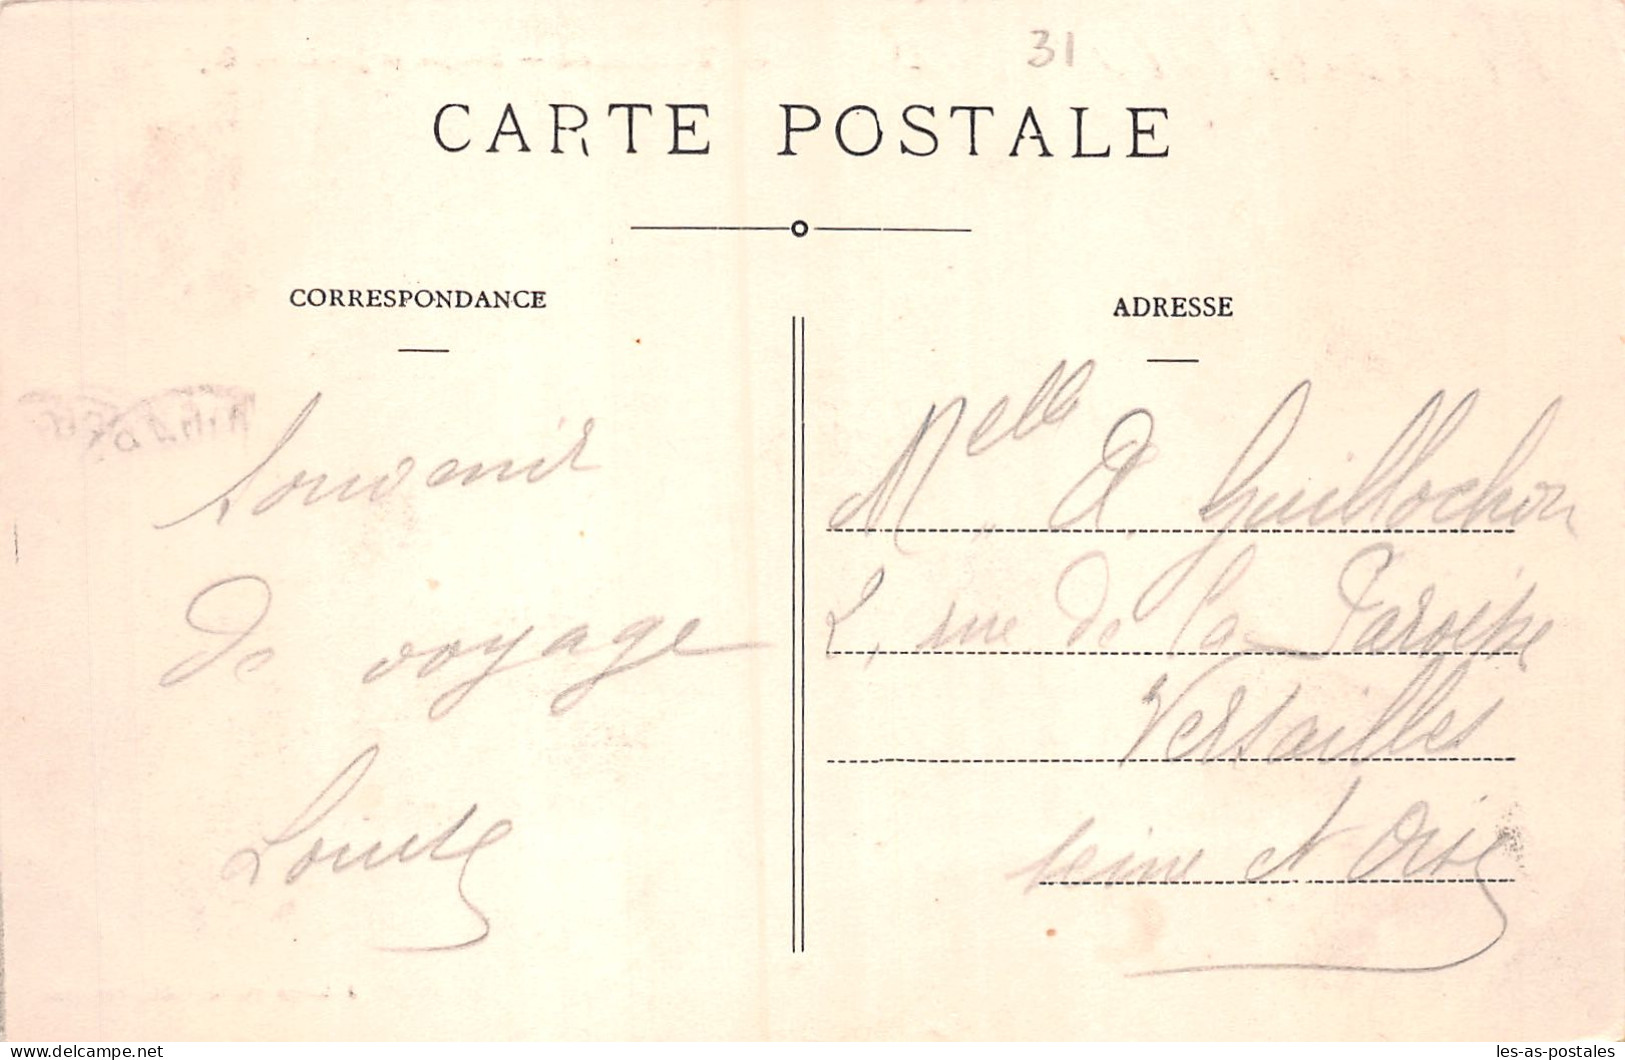 31
CARTE POSTALE
CORRESPONDANCE
Souvenir
de voyage
Louise
ADRESSE
Melle A. Guillochon
2, rue de la Paroisse
Versailles
Seine et Oise
delcampe.net
les-as-postales